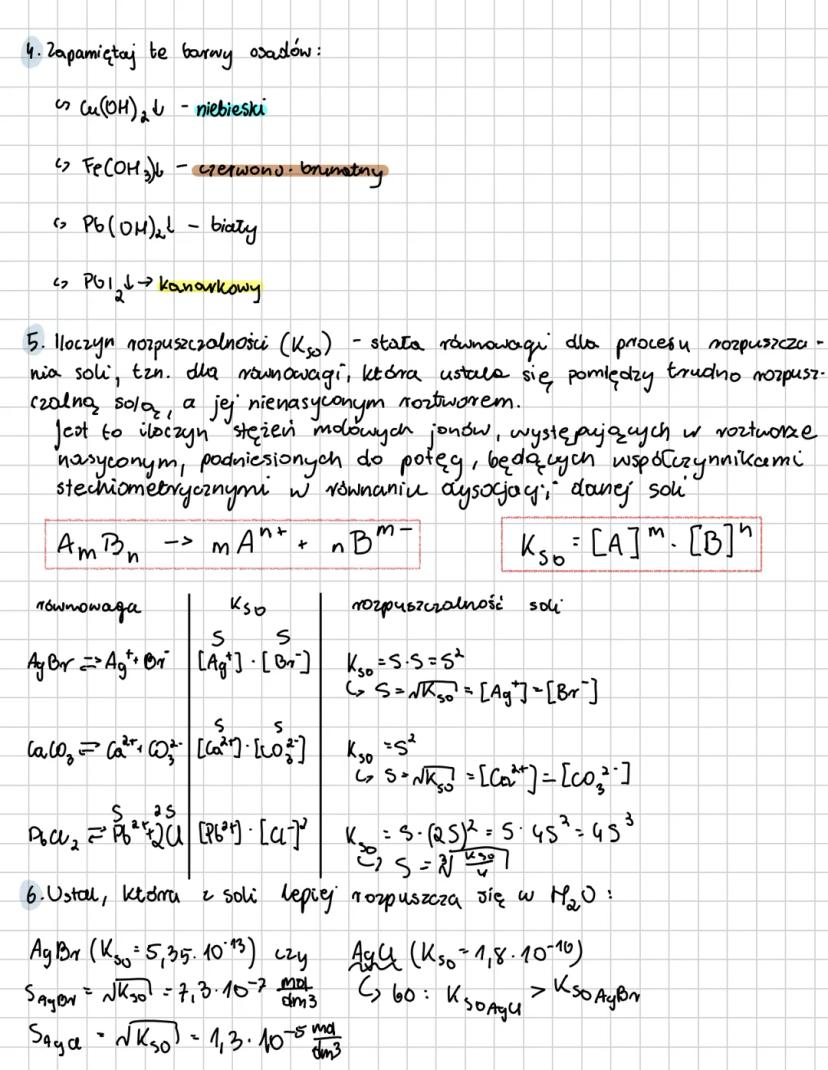 4. Zapamiętaj te barwy osadów:
↳ Cu(OH)₂↓ - niebieski
↳ Fe(OH₃)↓ - czerwono-brunatny
↳ Pb(OH)₂↓ - biały
↳ PbI₂↓ → kanarkowy
5. Iloczyn rozpuszczalności (Kso) - stała równowagi dla procesu rozpuszcza-
nia soli, tzn. dla równowagi, która ustala się pomiędzy trudno rozpusz-
czalną solą, a jej nienasyconym roztworem.
Jest to iloczyn stężeń molowych jonów, występujących w roztworze
nasyconym, podniesionych do potęg, będących współczynnikami
stechiometrycznymi w równaniu dysocjacji danej soli
AmBn -> mAⁿ⁺ + nBᵐ⁻ Kso = [A]ᵐ · [B]ⁿ
równowaga Kso rozpuszczalność soli
S S
AgBr ⇌ Ag⁺ + Br⁻ [Ag⁺] · [Br⁻] Kso = S·S = S²
↳ S = √Kso = [Ag⁺] = [Br⁻]
S S
CaCO₃ ⇌ Ca²⁺ + CO₃²⁻ [Ca²⁺] · [CO₃²⁻] Kso = S²
↳ S = √Kso = [Ca²⁺] = [CO₃²⁻]
S 2S
PbCl₂ ⇌ Pb²⁺ + 2Cl [Pb²⁺] · [Cl⁻]² Kso = S · (2S)² = S · 4S² = 4S³
↳ S = ³√Kso/4
6. Ustal, która z soli lepiej rozpuszcza się w H₂O:
AgBr (Kso = 5,35 · 10⁻¹³) czy AgCl (Kso = 1,8 · 10⁻¹⁰)
SAgBr = √Kso = 7,3 · 10⁻⁷ mol/dm3 ↳ bo: KsoAgCl > KsoAgBr
SAgCl = √Kso = 1,3 · 10⁻⁵ mol/dm3